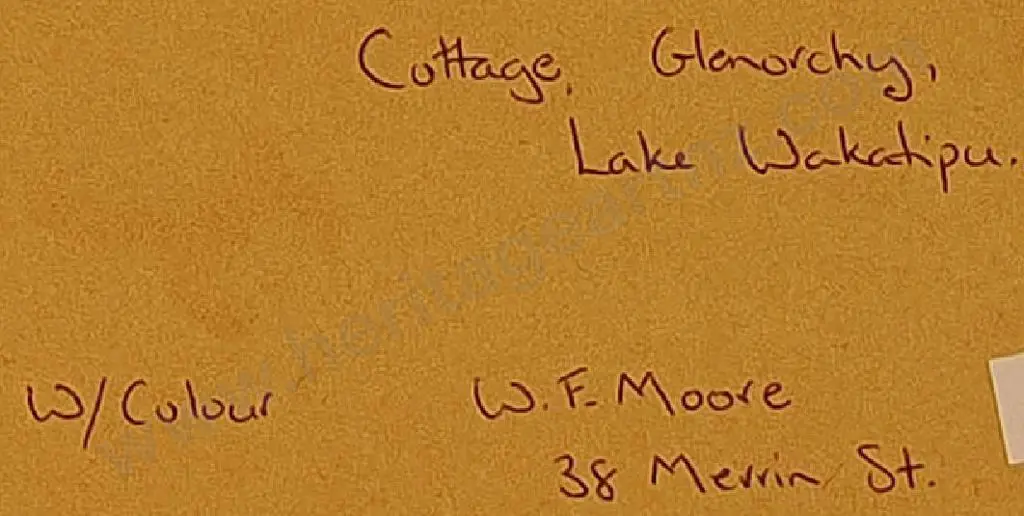 Cottage, Glenorchy,
Lake Wakatipu.
W/Colour W. F. Moore
38 Merrin St.